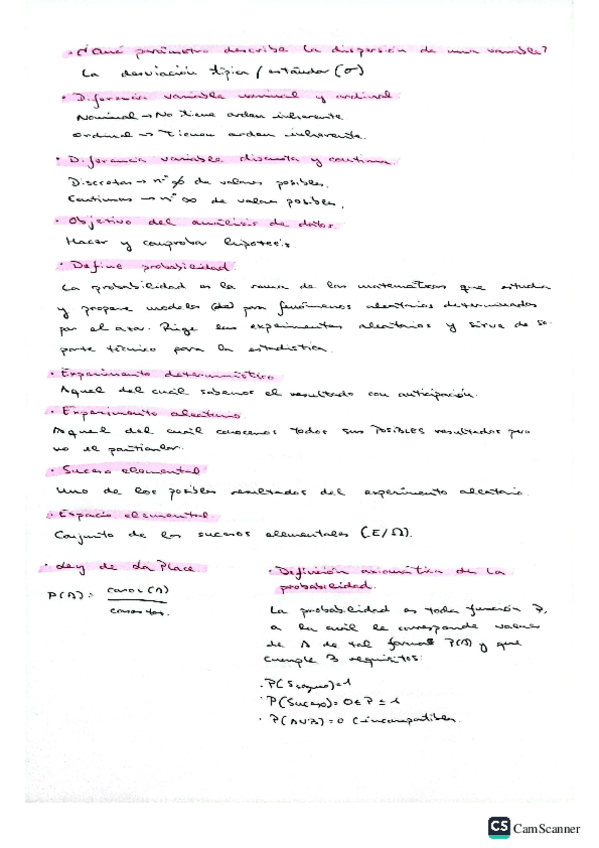 · ¿Qué parámetro describe la dispersión de una variable?
La desviación típica / estándar (σ)
· Diferencia variable nominal y ordinal
Nominal → No tiene orden inherente.
Ordinal → Tienen orden inherente.
· Diferencia variable discreta y continua.
Discretas → nº de valores posibles.
Continuas → nº ∞ de valores posibles.
· Objetivo del análisis de datos
Hacer y comprobar hipótesis.
· Define probabilidad.
La probabilidad es la rama de las matemáticas que estudia
y propone modelos para fenómenos aleatorios determinados
por el azar. Rige los experimentos aleatorios y sirve de so-
porte técnico para la estadística.
· Experimento determinístico
Aquel del cuál sabemos el resultado con anticipación.
· Experimento aleatorio
Aquel del cuál conocemos todos sus posibles resultados pero
no el particular.
· Suceso elemental
Uno de los posibles resultados del experimento aleatorio.
· Espacio elemental.
Conjunto de los sucesos elementales (E/Ω).
· Ley de La Place
P(A) = casos (A)
casos tos.
· Definición axiomática de la
probabilidad.
La probabilidad es toda función P,
a la cuál le corresponde valores
de A de tal forma P(A) y que
cumple 3 requisitos:
· P(S seguro) = 1
· P(Suceso) = 0 ≤ P ≤ 1
· P(A∪B) = 0 (incompatibles.
CS CamScanner